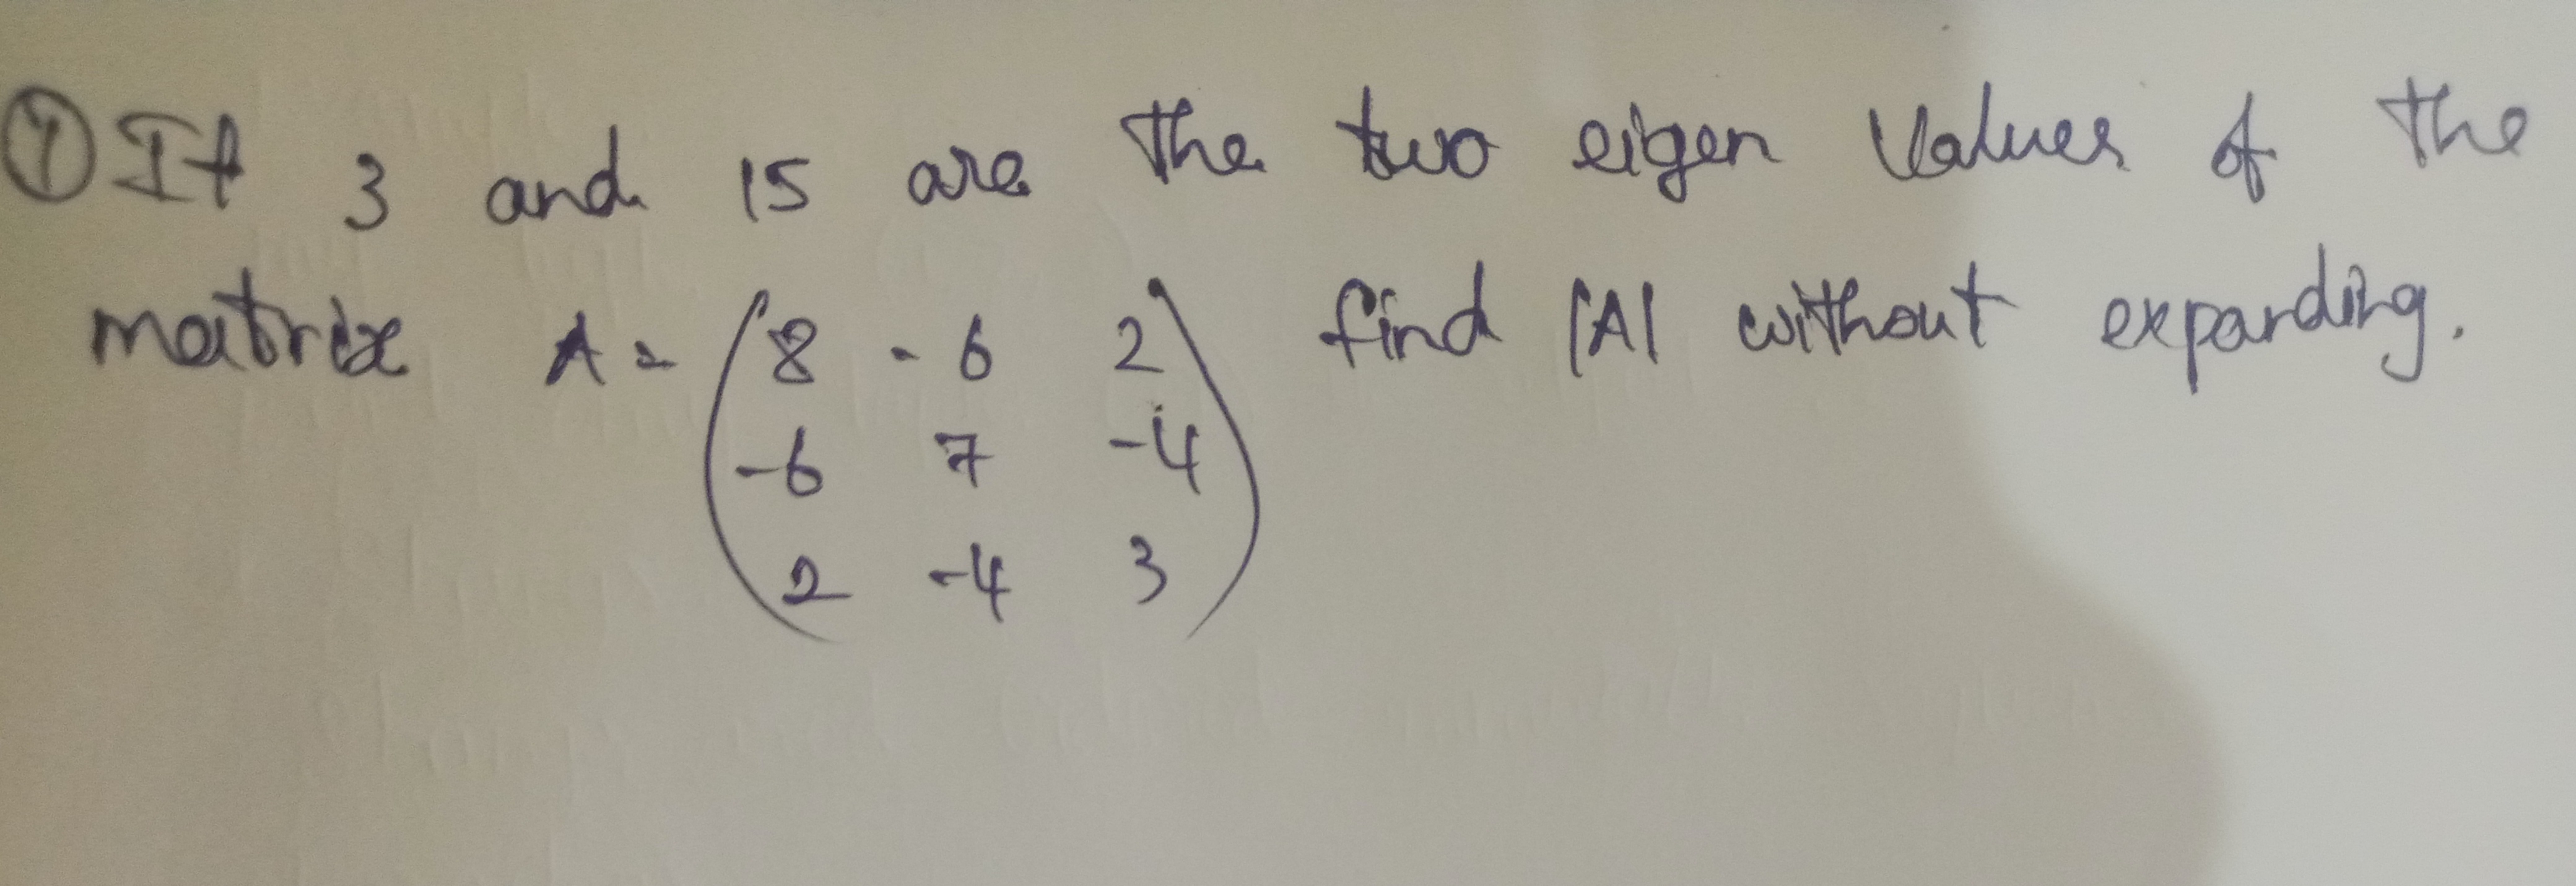 ① If 3 and 15 are the two eigen values of the
matrix A = (8 -6 2) find |A| without expanding.
-6 7 -4
2 -4 3